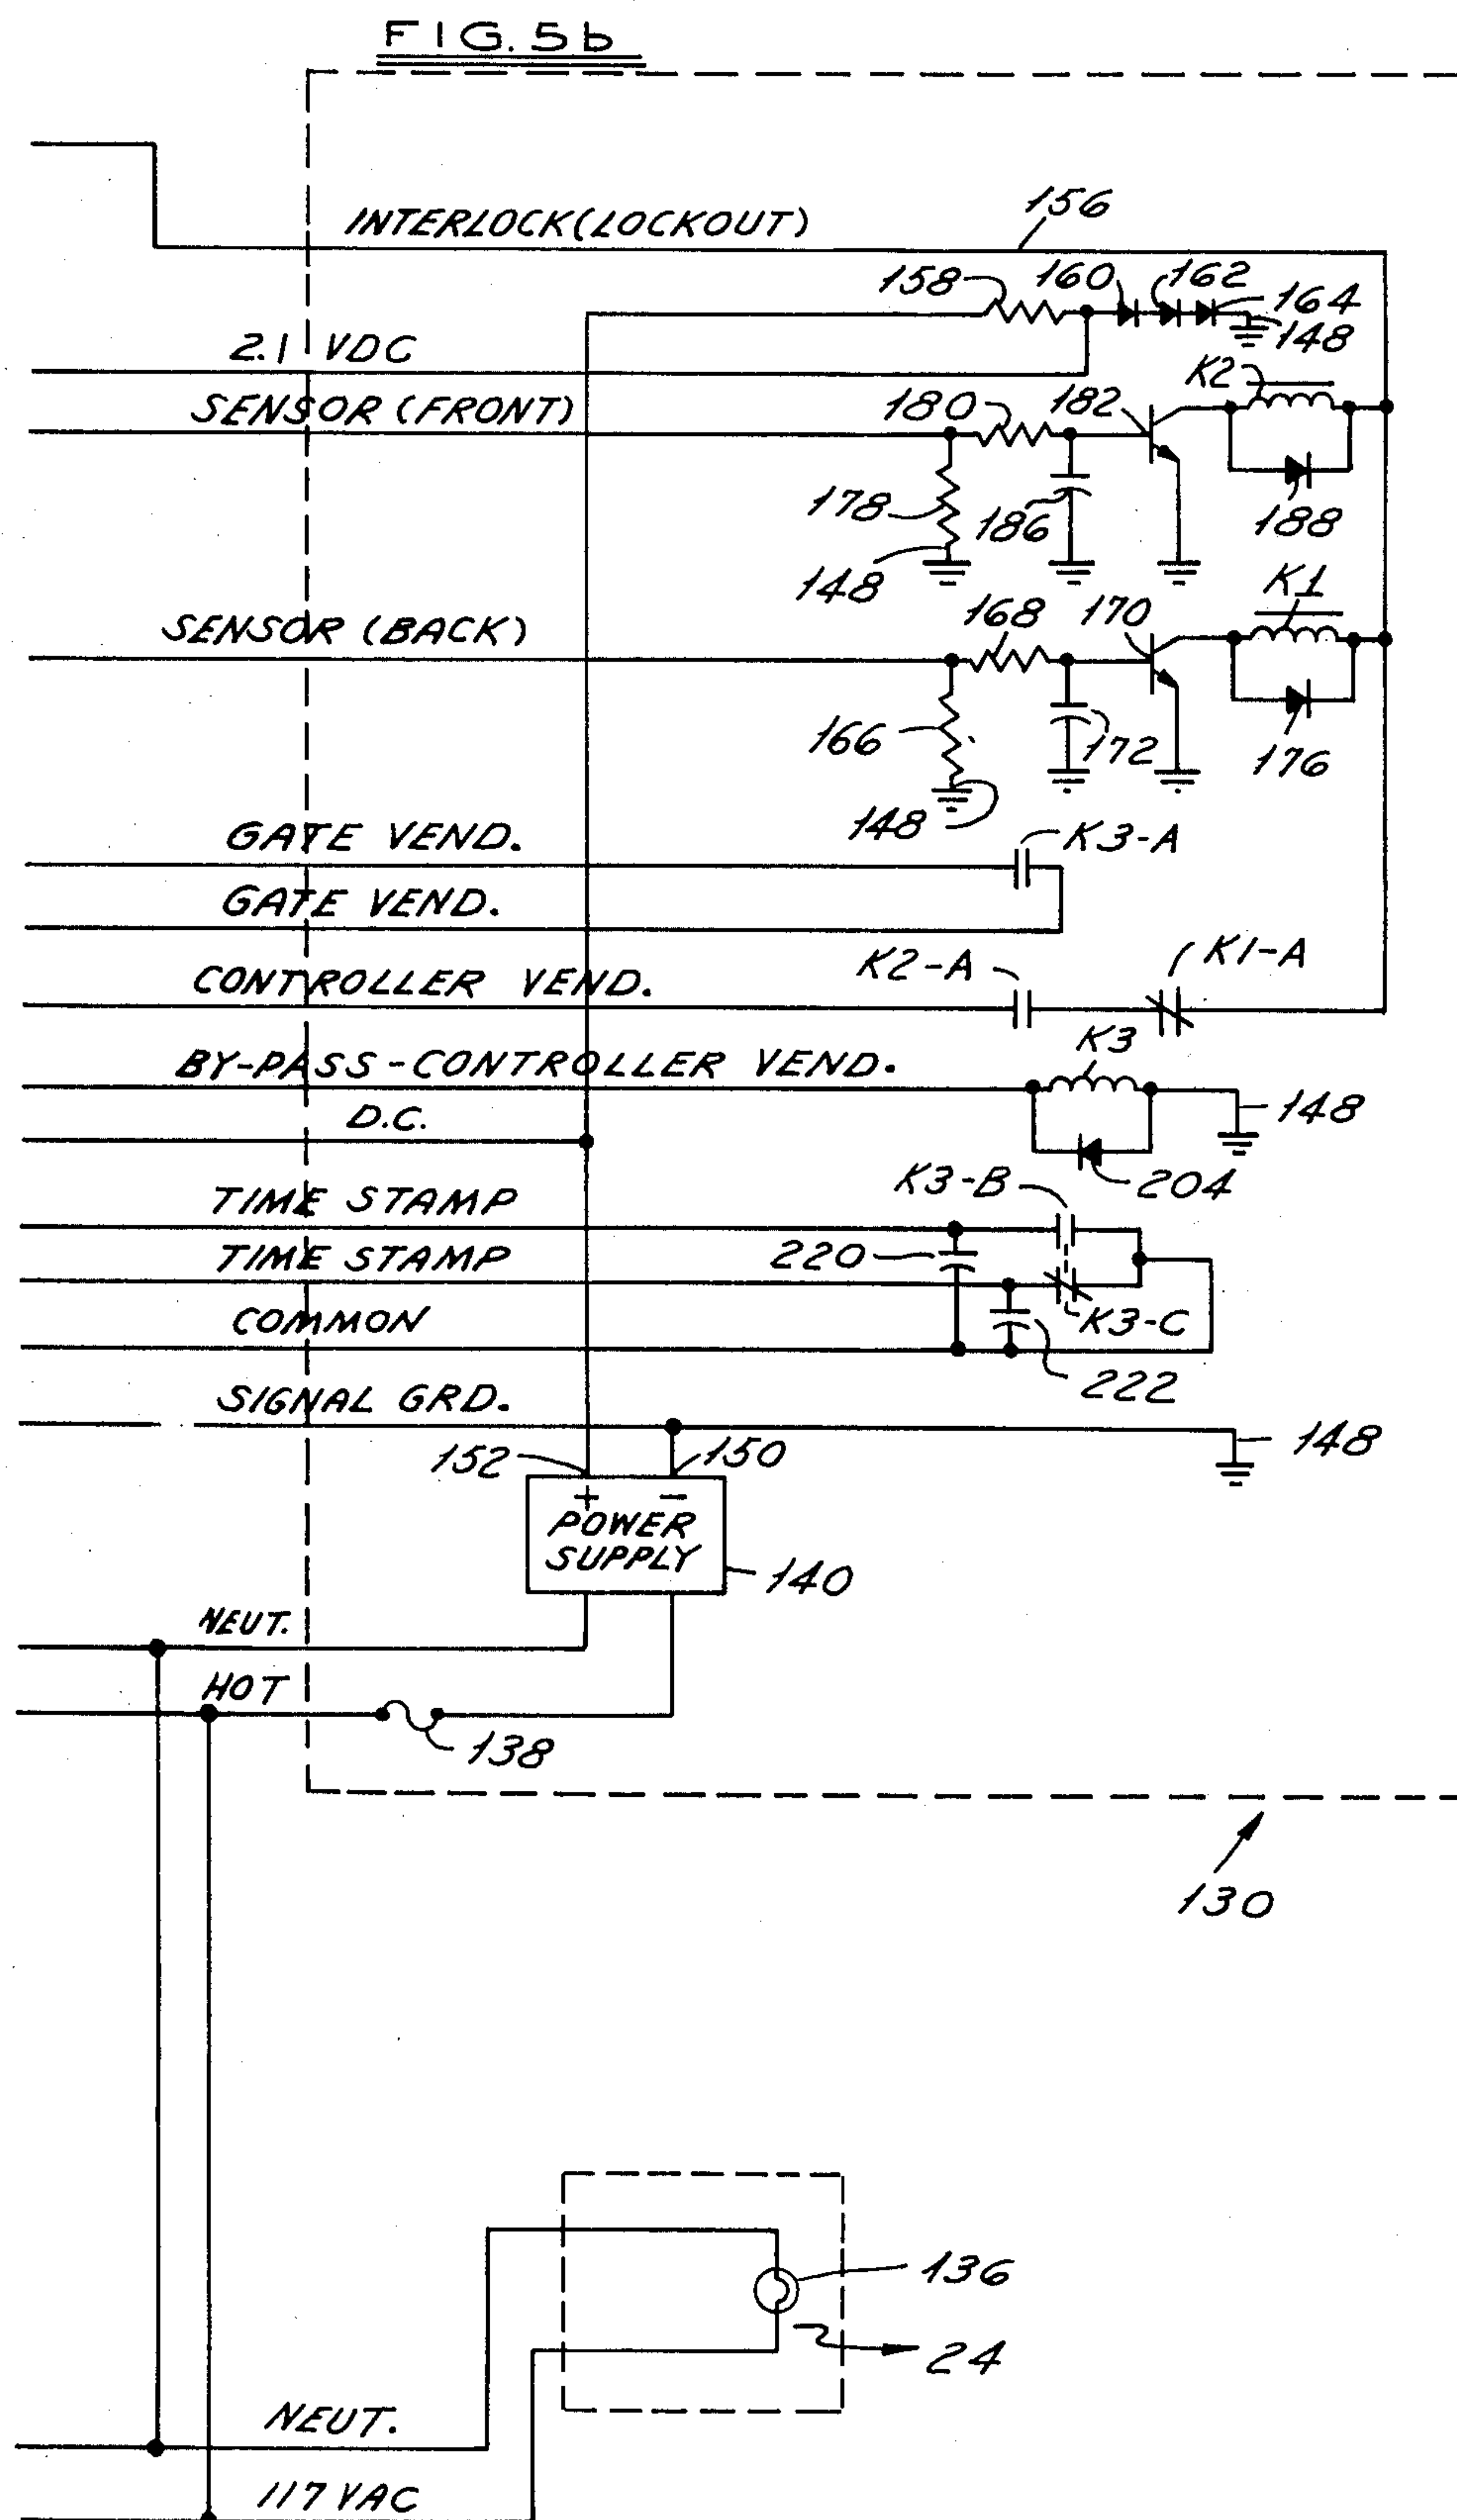 FIG. 5b
INTERLOCK(LOCKOUT)
156
158
160
162
164
148
2.1 VDC
K2
SENSOR (FRONT)
180
182
178
186
188
148
K1
SENSOR (BACK)
168
170
166
172
176
148
GATE VEND.
K3-A
GATE VEND.
K2-A
K1-A
CONTROLLER VEND.
K3
BY-PASS-CONTROLLER VEND.
148
D.C.
K3-B
204
TIME STAMP
220
TIME STAMP
K3-C
COMMON
222
SIGNAL GRD.
148
152
150
+ −
POWER
SUPPLY
140
NEUT.
HOT
138
130
136
24
NEUT.
117 VAC